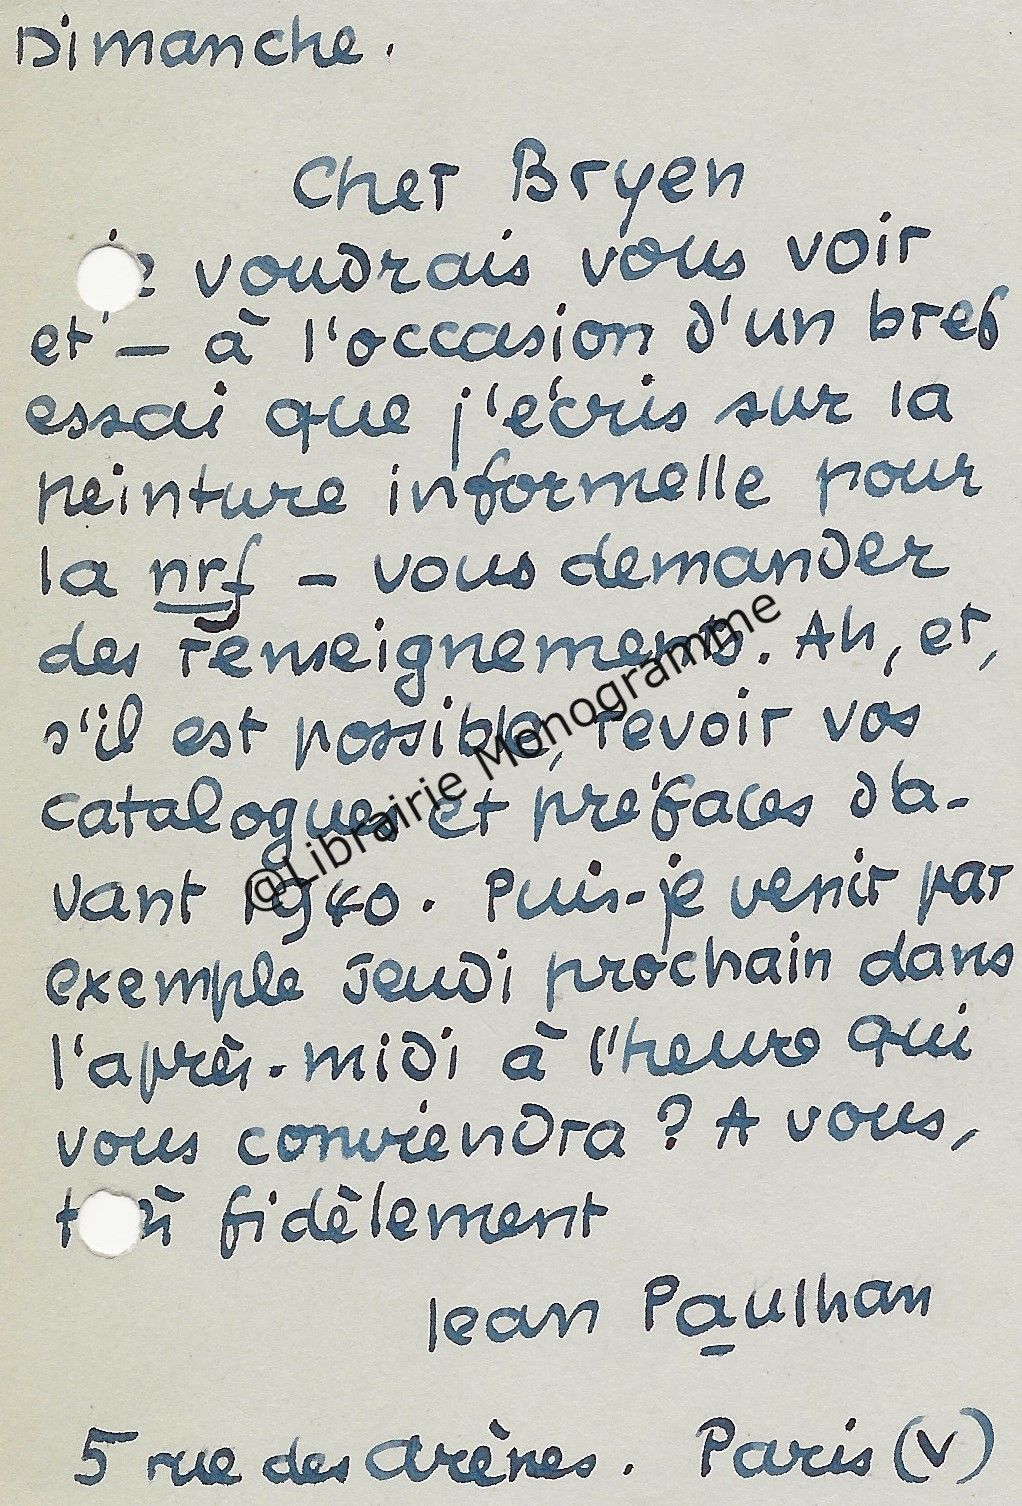 Dimanche.
Cher Bryen
je voudrais vous voir
et – à l'occasion d'un bref
essai que j'écris sur la
peinture informelle pour
la nrf – vous demander
des renseignements. Ah, et,
s'il est possible, revoir vos
catalogues et préfaces d'a-
vant 1940. Puis-je venir par
exemple Jeudi prochain dans
l'après-midi à l'heure qui
vous conviendra ? A vous,
très fidèlement
Jean Paulhan
5 rue des arènes. Paris (V)
@Librairie Monogramme